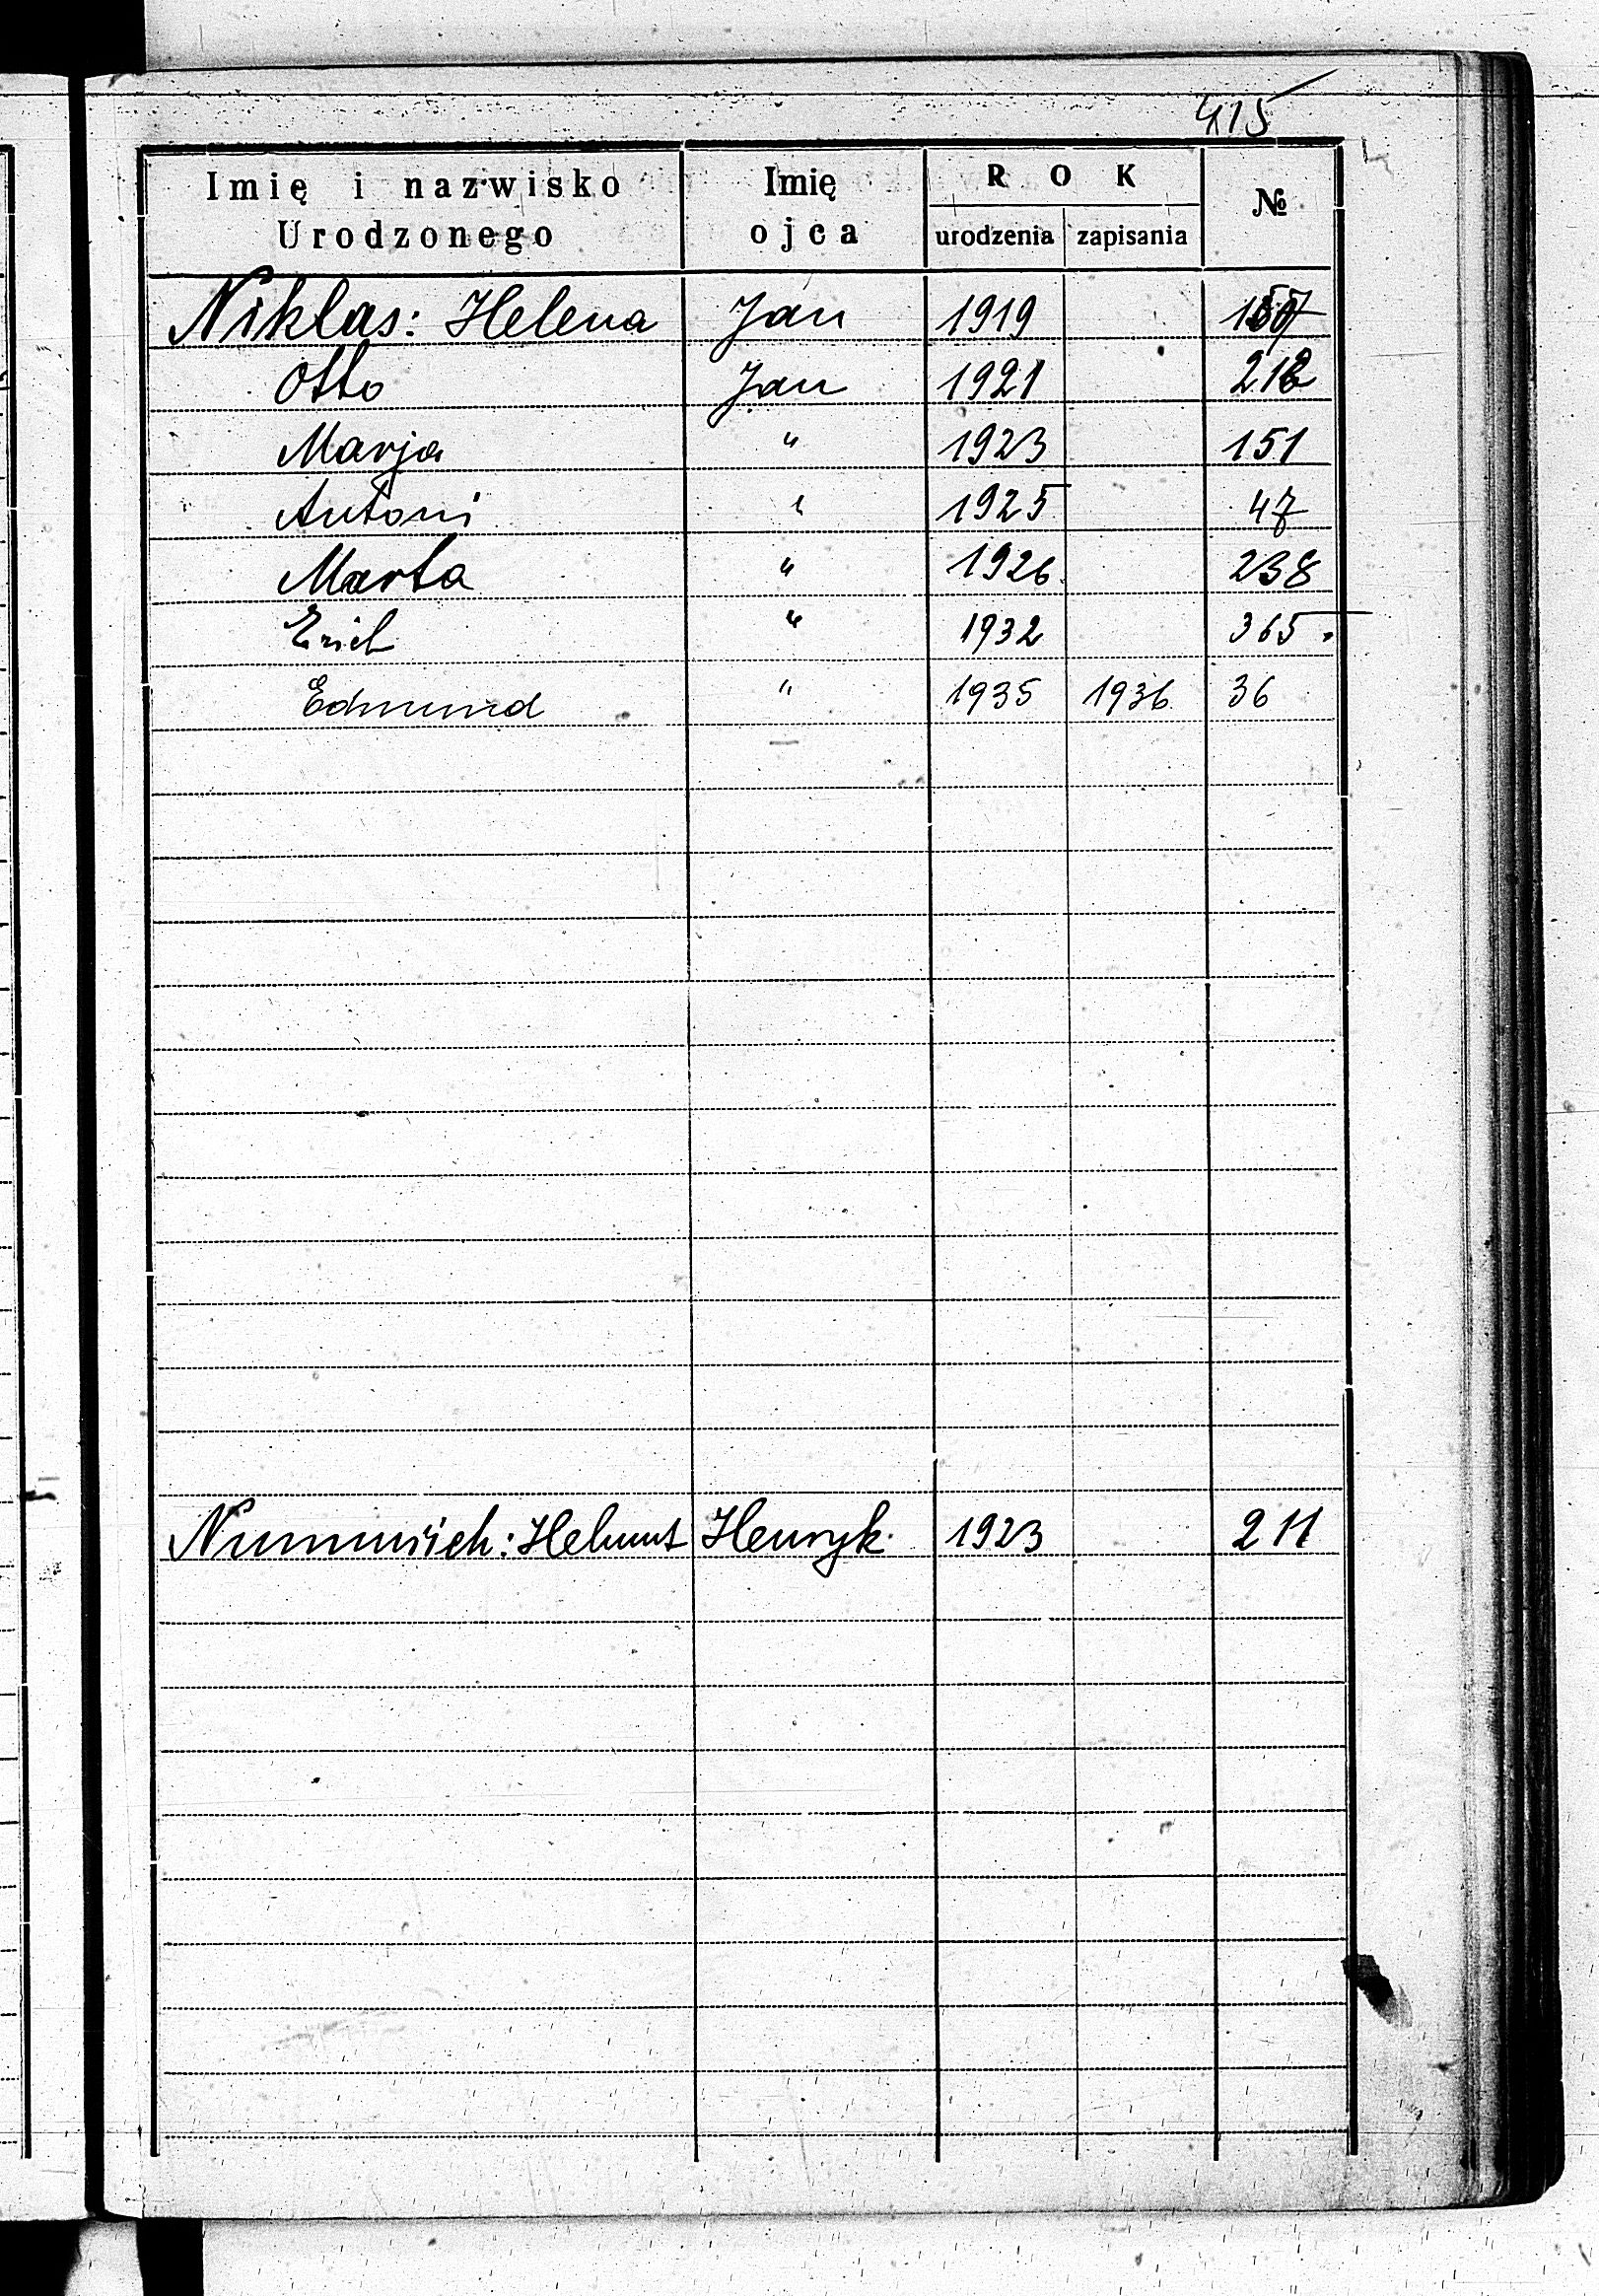 415
Imię i nazwisko Urodzonego Imię ojca ROK urodzenia zapisania №
Niklas: Helena Jan 1919
Otto Jan 1921
Marja " 1923 151
Antoni " 1925 47
Marta " 1926. 238
Erich " 1932 365.
Edmund " 1935 1936 36
Helmut Henryk 1923 211